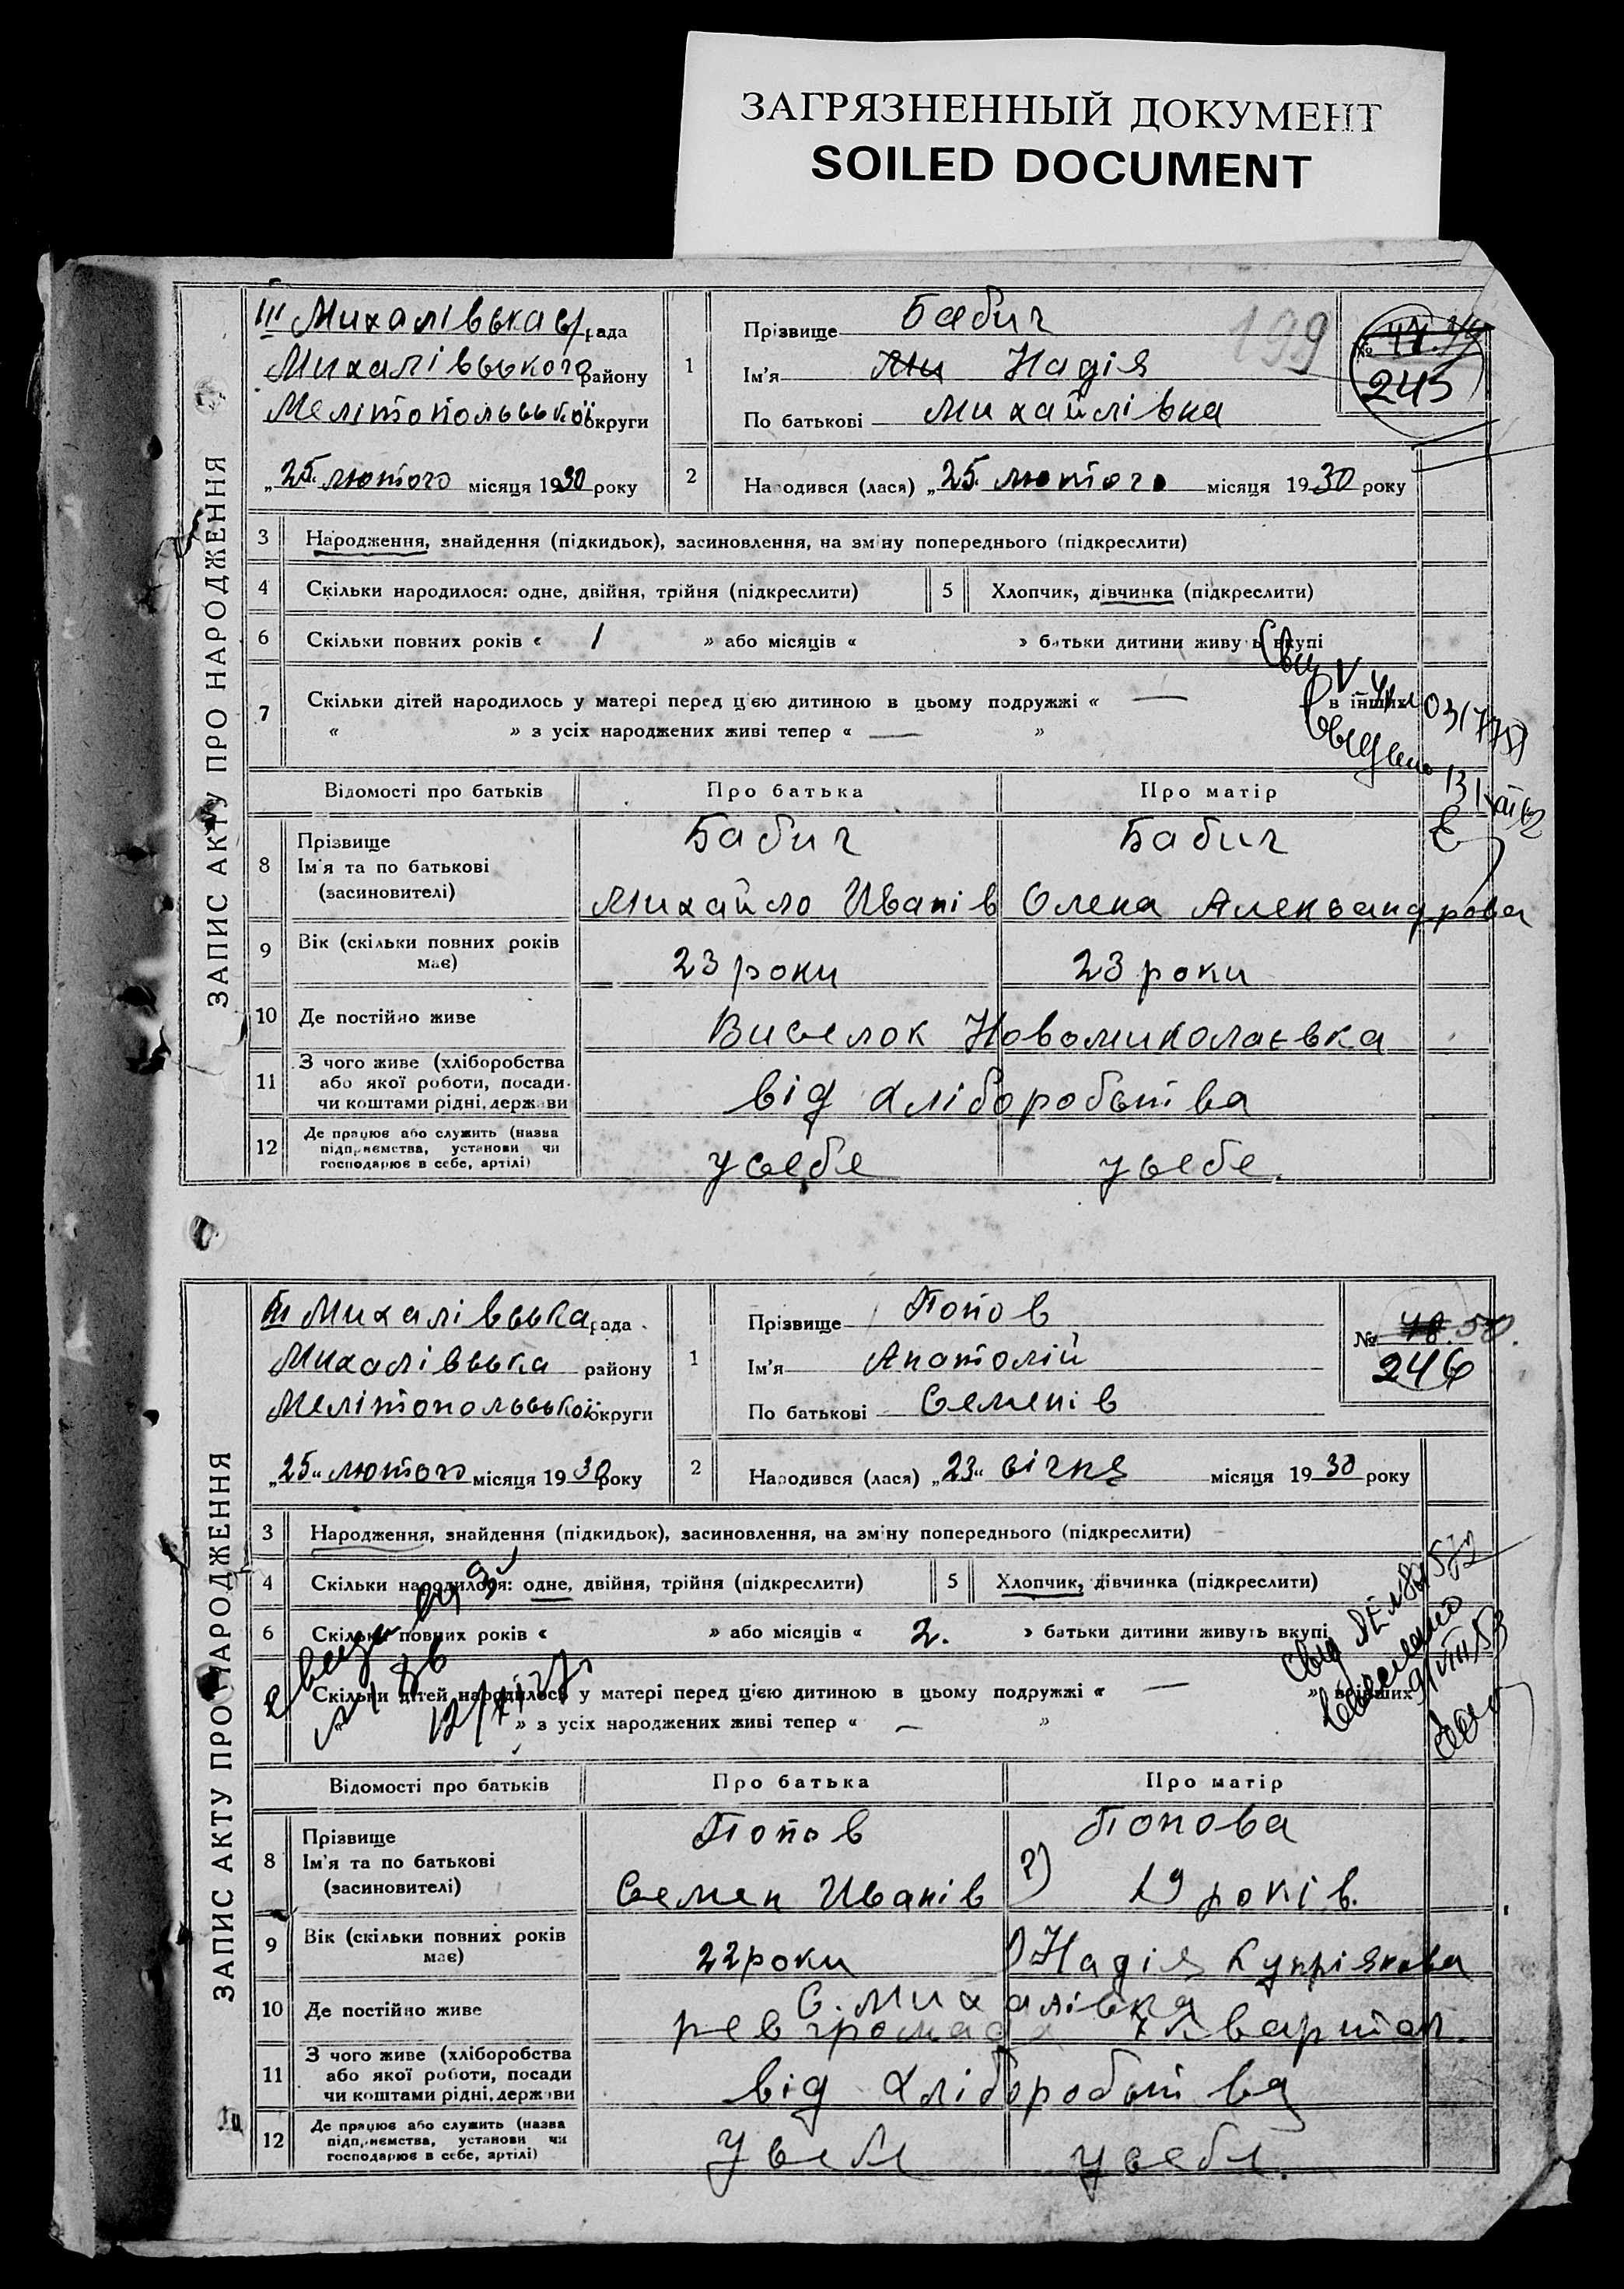 ЗАГРЯЗНЕННЫЙ ДОКУМЕНТ
SOILED DOCUMENT
ЗАПИС АКТУ ПРО НАРОДЖЕННЯ
III Михалівська с/рада
Михалівського району
Мелітопольської округи
„25" лютого місяця 1930 року
199
№ 245
1
Прізвище Бабич
Ім'я Надія
По батькові Михайлівна
2
Народився (лася) „25" лютого місяця 1930 року
3 Народження, знайдення (підкидьок), засиновлення, на зміну попереднього (підкреслити)
4 Скільки народилося: одне, двійня, трійня (підкреслити) 5 Хлопчик, дівчинка (підкреслити)
6 Скільки повних років « 1 » або місяців « » батьки дитини живуть вкупі
7 Скільки дітей народилось у матері перед цією дитиною в цьому подружжі « — в інших
« » з усіх народжених живі тепер « — »
Відомості про батьків Про батька Про матір
8 Прізвище
Ім'я та по батькові
(засиновителі)
Бабич Бабич
Михайло Иванів Олена Александрова
9 Вік (скільки повних років має) 23 роки 23 роки
10 Де постійно живе Виселок Новомиколаєвка
11 З чого живе (хліборобства
або якої роботи, посади
чи коштами рідні, держави
від хліборобства
12 Де працює або служить (назва
підприємства, установи чи
господарює в себе, артілі)
у себе у себе.
ЗАПИС АКТУ ПРО НАРОДЖЕННЯ
III Михалівська рада
Михалівська району
Мелітопольської округи
„25" лютого місяця 1930 року
№ 48. 50.
246
1
Прізвище Попов
Ім'я Анатолій
По батькові Семенів
2
Народився (лася) „23" січня місяця 1930 року
3 Народження, знайдення (підкидьок), засиновлення, на зміну попереднього (підкреслити)
4 Скільки народилося: одне, двійня, трійня (підкреслити) 5 Хлопчик, дівчинка (підкреслити)
6 Скільки повних років « » або місяців « 2. » батьки дитини живуть вкупі
Скільки дітей народилось у матері перед цією дитиною в цьому подружжі « — » в інших
» з усіх народжених живі тепер « — »
Відомості про батьків Про батька Про матір
8 Прізвище
Ім'я та по батькові
(засиновителі)
Попов Попова
Семен Иванів 2) 19 років.
9 Вік (скільки повних років має) 22 роки 1) Надія Купріянова
10 Де постійно живе С. Михалівка
рев громада 7 квартал.
11 З чого живе (хліборобства
або якої роботи, посади
чи коштами рідні, держави
від хліборобства
12 Де працює або служить (назва
підприємства, установи чи
господарює в себе, артілі)
у себе у себе.